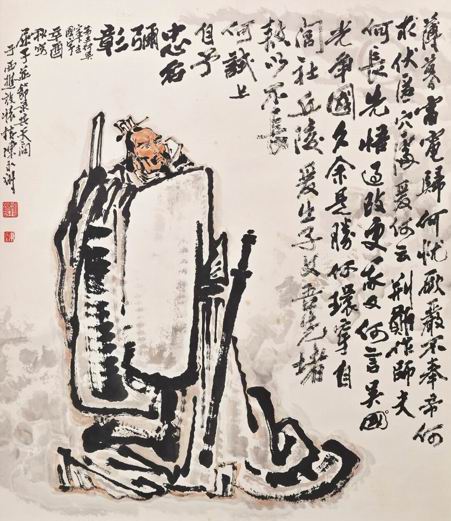 薄暮雷電歸何憂厥嚴不奉帝何
求伏匿穴處爰何云荊勛作師夫
何長先悟過改更我又何言吳
光爭國久余是勝何環穿自
閭社丘陵爰出子文吾告堵
敖以不長
何試上
自予
忠名
彌
彰
辛酉
秋寫
屈子並錄天問